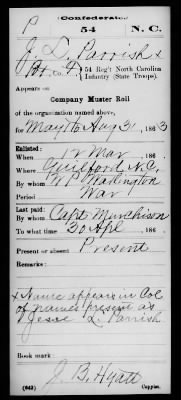 Confederate
P 54 N. C.
J. L. Parrish x
Co. 54 Reg't North Carolina
Infantry (State Troops).
Appears on
Company Muster Roll
of the organization named above,
for May 1 to Aug 31, 1863
Enlisted:
When 12 Mar 186
Where Guilford N.C.
By whom
Period War
Last paid:
By whom Capt Murchison
To what time 30 April 186
Present or absent Present
Remarks:
x Name appears in Col
of names present as
Jesse L. Parrish
Book mark:
J. B. Hyatt
(642) Copyist.